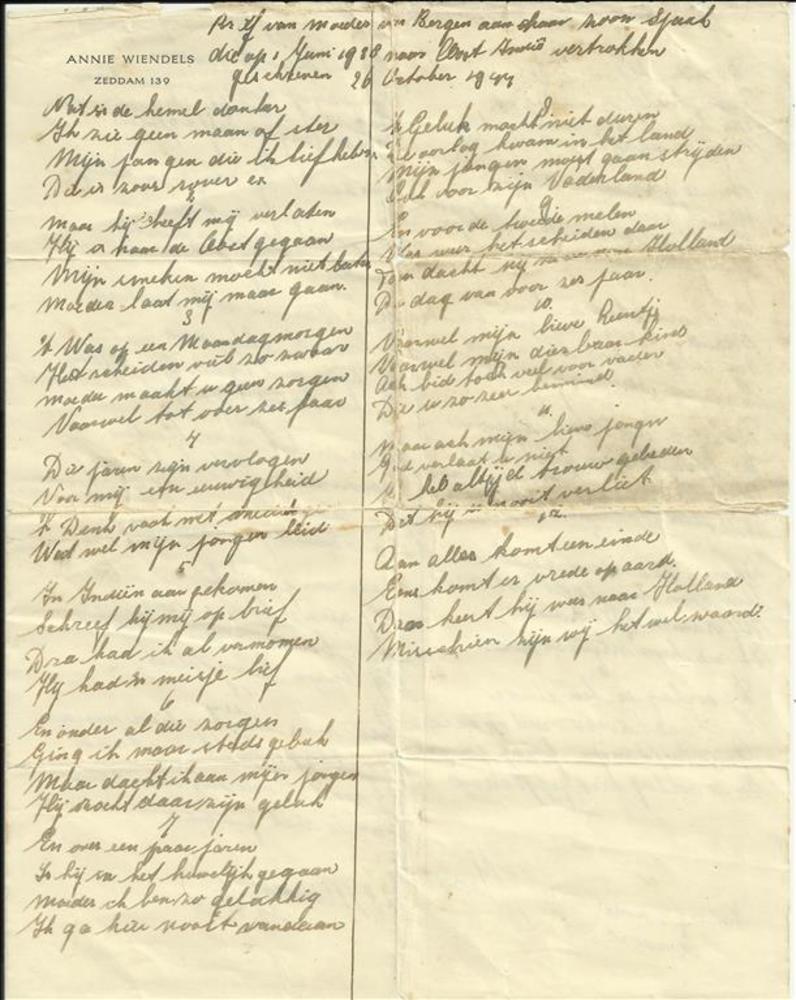 Brief van moeder van Bergen aan haar zoon Sjaak
ANNIE WIENDELS
ZEDDAM 139
die op 1 Juni 1938 naar Oost Indië vertrokken
geschreven 26 October 1944
Wat is de hemel donker
Ik zie geen maan of ster
Mijn jongen die ik lief heb
Die is zoo ver
2
Maar hij heeft mij verlaten
Hij is naar de Oost gegaan
Mijn smeken mocht niet baten
Moeder laat mij maar gaan.
3
't Was op een Maandagmorgen
Het scheiden viel zo zwaar
moeder maakt u geen zorgen
Vaarwel tot over zes jaar
4
Die jaren zijn vervlogen
Voor mij een eeuwigheid
'k Denk vaak met
Wat wel mijn jongen leid
5
In Indiën aangekomen
Schreef hij mij op brief
Dra had ik al vernomen
Hij had 'n meisje lief
6
En onder al die zorgen
Ging ik maar steeds gebukt
Maar dacht ik aan mijn jongen
Hij zocht daar zijn geluk
7
En over een paar jaren
Is hij in het huwelijk gegaan
Moeder ik ben zo gelukkig
Ik ga hier nooit vandaan
8
't Geluk mocht niet duren
De oorlog kwam in het land
Mijn jongen moest gaan strijden
Ook voor zijn Vaderland
9.
En voor de tweede malen
Was weer het scheiden daar
Toen dacht hij Holland
De dag van voor zes jaar.
10.
Vaarwel mijn lieve
Vaarwel mijn dierbaar kind
Ach bid toch veel voor vader
Die u zo zeer bemind.
11.
Maar ach mijn lieve jongen
God verlaat u niet
'k heb altijd trouw gebeden
Dat hij u nooit verliet
12.
Aan alles komt een einde
Eens komt er vrede op aard.
Dra keert hij weer naar Holland
Misschien zijn wij het wel waard.